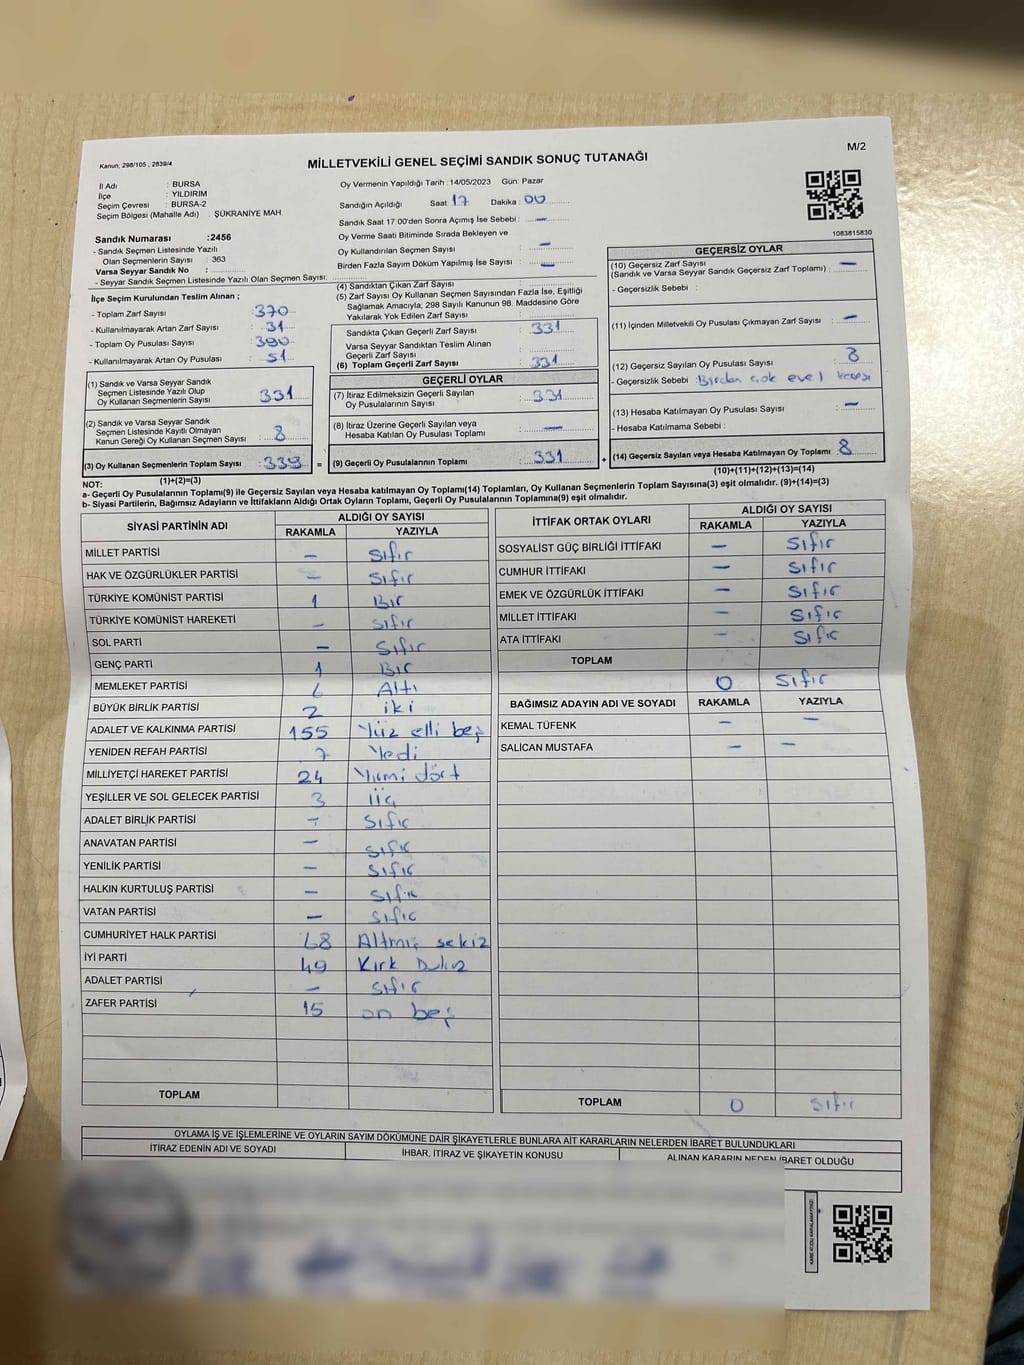 Kanun, 298/105 , 2839/4
MİLLETVEKİLİ GENEL SEÇİMİ SANDIK SONUÇ TUTANAĞI
M/2
İl Adı : BURSA
İlçe : YILDIRIM
Seçim Çevresi : BURSA-2
Seçim Bölgesi (Mahalle Adı) : ŞÜKRANİYE MAH.
Sandık Numarası :2456
- Sandık Seçmen Listesinde Yazılı
Olan Seçmenlerin Sayısı : 363
Varsa Seyyar Sandık No :
- Seyyar Sandık Seçmen Listesinde Yazılı Olan Seçmen Sayısı:
Oy Vermenin Yapıldığı Tarih : 14/05/2023 Gün: Pazar
Sandığın Açıldığı Saat 17 Dakika : 00
Sandık Saat 17:00'den Sonra Açımış İse Sebebi : —
Oy Verme Saati Bitiminde Sırada Bekleyen ve
Oy Kullandırılan Seçmen Sayısı : —
Birden Fazla Sayım Döküm Yapılmış İse Sayısı : —
1083815830
İlçe Seçim Kurulundan Teslim Alınan ;
- Toplam Zarf Sayısı : 370
- Kullanılmayarak Artan Zarf Sayısı : 31
- Toplam Oy Pusulası Sayısı : 390
- Kullanılmayarak Artan Oy Pusulası : 51
(1) Sandık ve Varsa Seyyar Sandık
Seçmen Listesinde Yazılı Olup
Oy Kullanan Seçmenlerin Sayısı : 331
(2) Sandık ve Varsa Seyyar Sandık
Seçmen Listesinde Kayıtlı Olmayan
Kanun Gereği Oy Kullanan Seçmen Sayısı : 8
(3) Oy Kullanan Seçmenlerin Toplam Sayısı : 339 =
(1)+(2)=(3)
(4) Sandıktan Çıkan Zarf Sayısı :
(5) Zarf Sayısı Oy Kullanan Seçmen Sayısından Fazla İse, Eşitliği
Sağlamak Amacıyla, 298 Sayılı Kanunun 98. Maddesine Göre
Yakılarak Yok Edilen Zarf Sayısı :
Sandıkta Çıkan Geçerli Zarf Sayısı : 331
Varsa Seyyar Sandıktan Teslim Alınan
Geçerli Zarf Sayısı :
(6) Toplam Geçerli Zarf Sayısı : 331
GEÇERLİ OYLAR
(7) İtiraz Edilmeksizin Geçerli Sayılan
Oy Pusulalarının Sayısı : 331
(8) İtiraz Üzerine Geçerli Sayılan veya
Hesaba Katılan Oy Pusulası Toplamı : —
(9) Geçerli Oy Pusulalarının Toplamı : 331 +
GEÇERSİZ OYLAR
(10) Geçersiz Zarf Sayısı
(Sandık ve Varsa Seyyar Sandık Geçersiz Zarf Toplamı) : —
- Geçersizlik Sebebi :
(11) İçinden Milletvekili Oy Pusulası Çıkmayan Zarf Sayısı : —
(12) Geçersiz Sayılan Oy Pusulası Sayısı : 8
- Geçersizlik Sebebi : Birden çok evet
(13) Hesaba Katılmayan Oy Pusulası Sayısı : —
- Hesaba Katılmama Sebebi :
(14) Geçersiz Sayılan veya Hesaba Katılmayan Oy Toplamı : 8
(10)+(11)+(12)+(13)=(14)
NOT:
a- Geçerli Oy Pusulalarının Toplamı(9) ile Geçersiz Sayılan veya Hesaba katılmayan Oy Toplamı(14) Toplamları, Oy Kullanan Seçmenlerin Toplam Sayısına(3) eşit olmalıdır. (9)+(14)=(3)
b- Siyasi Partilerin, Bağımsız Adayların ve İttifakların Aldığı Ortak Oyların Toplamı, Geçerli Oy Pusulalarının Toplamına(9) eşit olmalıdır.
SİYASİ PARTİNİN ADI ALDIĞI OY SAYISI
RAKAMLA YAZIYLA
MİLLET PARTİSİ — Sıfır
HAK VE ÖZGÜRLÜKLER PARTİSİ — Sıfır
TÜRKİYE KOMÜNİST PARTİSİ 1 Bir
TÜRKİYE KOMÜNİST HAREKETİ — Sıfır
SOL PARTİ — Sıfır
GENÇ PARTİ 1 Bir
MEMLEKET PARTİSİ 6 Altı
BÜYÜK BİRLİK PARTİSİ 2 iki
ADALET VE KALKINMA PARTİSİ 155 Yüz elli beş
YENİDEN REFAH PARTİSİ 7 Yedi
MİLLİYETÇİ HAREKET PARTİSİ 24 Yirmi dört
YEŞİLLER VE SOL GELECEK PARTİSİ 3 üç
ADALET BİRLİK PARTİSİ — Sıfır
ANAVATAN PARTİSİ — Sıfır
YENİLİK PARTİSİ — Sıfır
HALKIN KURTULUŞ PARTİSİ — Sıfır
VATAN PARTİSİ — Sıfır
CUMHURİYET HALK PARTİSİ 68 Altmış sekiz
İYİ PARTİ 49 Kırk Dokuz
ADALET PARTİSİ — Sıfır
ZAFER PARTİSİ 15 on beş
TOPLAM
İTTİFAK ORTAK OYLARI ALDIĞI OY SAYISI
RAKAMLA YAZIYLA
SOSYALİST GÜÇ BİRLİĞİ İTTİFAKI — Sıfır
CUMHUR İTTİFAKI — Sıfır
EMEK VE ÖZGÜRLÜK İTTİFAKI — Sıfır
MİLLET İTTİFAKI — Sıfır
ATA İTTİFAKI — Sıfır
TOPLAM 0 Sıfır
BAĞIMSIZ ADAYIN ADI VE SOYADI RAKAMLA YAZIYLA
KEMAL TÜFENK — —
SALİCAN MUSTAFA — —
TOPLAM 0 Sıfır
OYLAMA İŞ VE İŞLEMLERİNE VE OYLARIN SAYIM DÖKÜMÜNE DAİR ŞİKAYETLERLE BUNLARA AİT KARARLARIN NELERDEN İBARET BULUNDUKLARI
İTİRAZ EDENİN ADI VE SOYADI İHBAR, İTİRAZ VE ŞİKAYETİN KONUSU ALINAN KARARIN NEDEN İBARET OLDUĞU